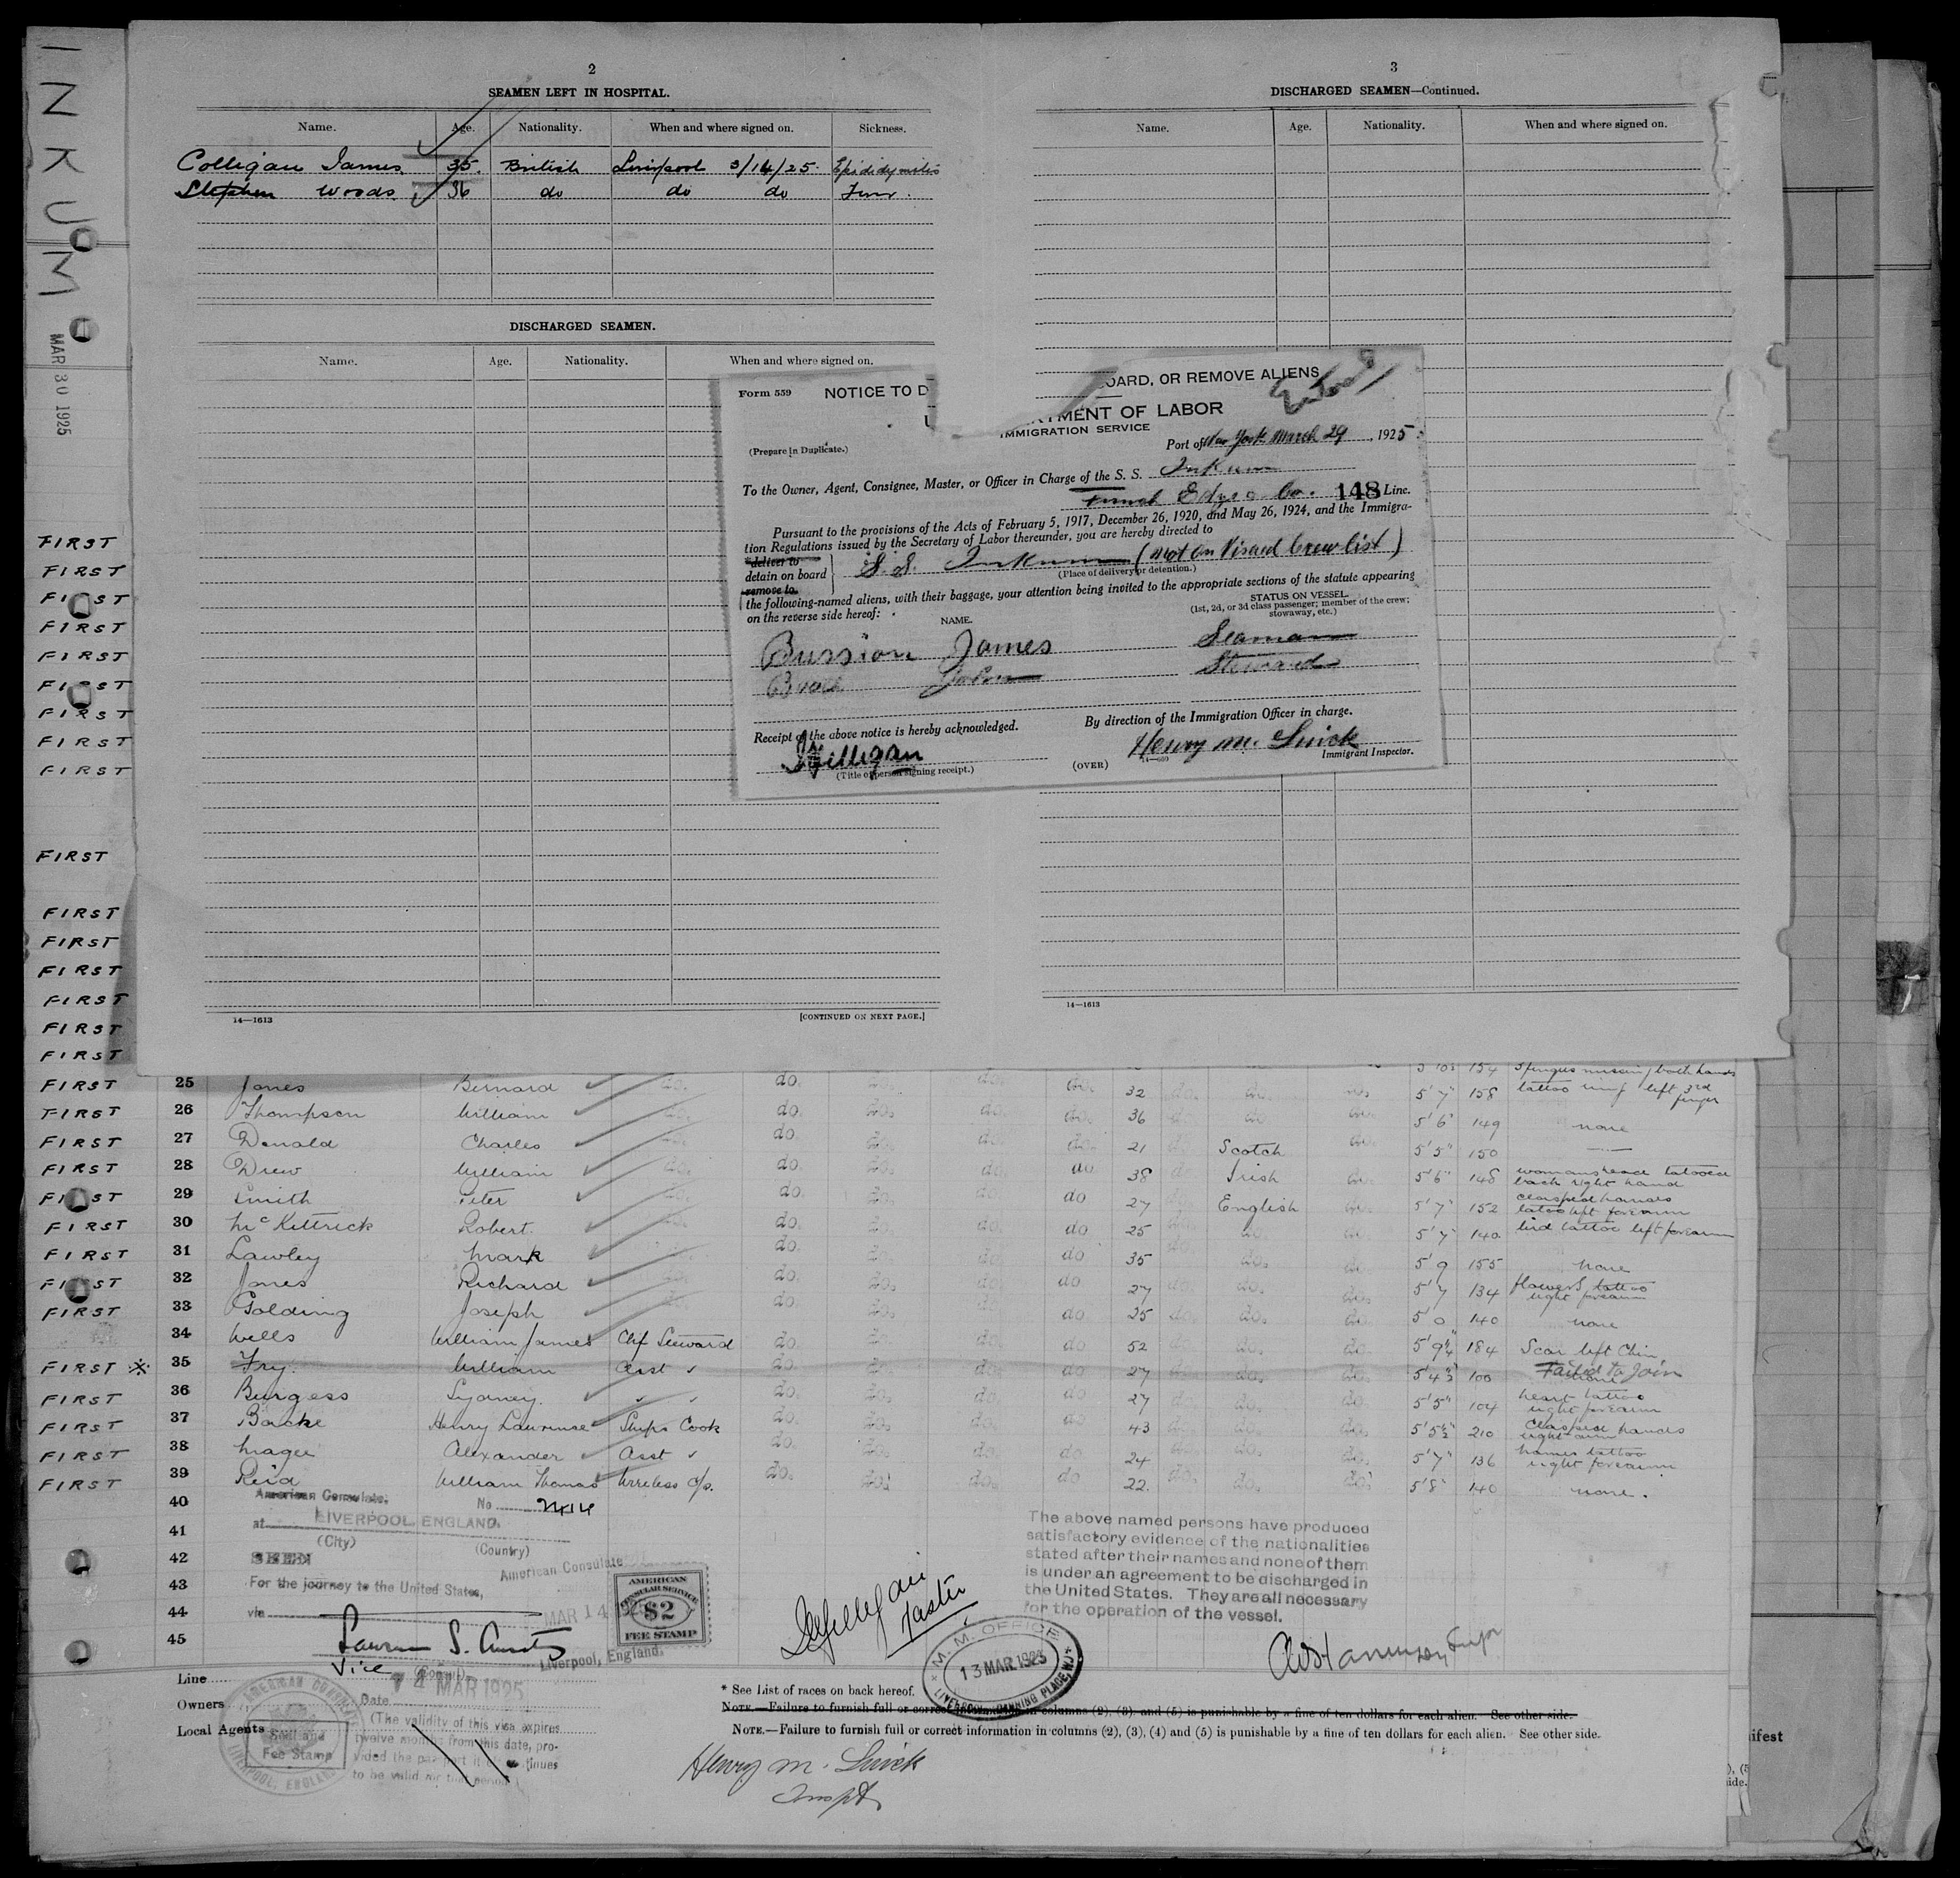 INKUM
MAR 30 1925
2
SEAMEN LEFT IN HOSPITAL.
Name. Age. Nationality. When and where signed on. Sickness.
Colligan James 35. British Liverpool 3/14/25. Epididymitis
Stephen Woods. 36 do do do
DISCHARGED SEAMEN.
Name. Age. Nationality. When and where signed on.
14—1613 [CONTINUED ON NEXT PAGE.]
3
DISCHARGED SEAMEN—Continued.
Name. Age. Nationality. When and where signed on.
14—1613
Form 559 NOTICE TO D OARD, OR REMOVE ALIENS
TMENT OF LABOR
IMMIGRATION SERVICE
(Prepare in Duplicate.)
Port of New York March 29, 1925
To the Owner, Agent, Consignee, Master, or Officer in Charge of the S. S. Inkum
Edye & Co. 148 Line.
Pursuant to the provisions of the Acts of February 5, 1917, December 26, 1920, and May 26, 1924, and the Immigra-
tion Regulations issued by the Secretary of Labor thereunder, you are hereby directed to
*deliver to
detain on board
remove to
S.S. Inkum (not on Visaed Crew list)
(Place of delivery or detention.)
the following-named aliens, with their baggage, your attention being invited to the appropriate sections of the statute appearing
on the reverse side hereof:
NAME.
STATUS ON VESSEL
(1st, 2d, or 3d class passenger; member of the crew;
stowaway, etc.)
James Seaman
John Steward
Receipt of the above notice is hereby acknowledged.
By direction of the Immigration Officer in charge.
Henry M.
Immigrant Inspector.
(Title of person signing receipt.)
(OVER)
14—559
FIRST
FIRST
FIRST
FIRST
FIRST
FIRST
FIRST
FIRST
FIRST
FIRST
FIRST
FIRST
FIRST
FIRST
FIRST
FIRST
5 10½ 154 3 fingers missing both hands
FIRST 25 Jones Bernard do. do. do. do. do. 32 do. do. do. 5'7" 158 tattoo ring left 3rd finger
FIRST 26 Thompson William do. do. do. do. do. 36 do. do do. 5'6" 149 none
FIRST 27 Donald Charles do. do. do. do. do. 21 do. Scotch do. 5'5" 150 —
FIRST 28 Drew William do. do. do. do. do 38 do. Irish do. 5'6" 148 womans head tatooed back right hand
FIRST 29 Smith Peter do. do. do. do. do 27 do. English do. 5'7" 152 clasped hands tatoo left forearm
FIRST 30 McKittrick Robert. do. do. do. do. do 25 do. do. do. 5'7" 140. bird tattoo left forearm
FIRST 31 Lawley Mark do. do. do. do. do 35 do. do. do. 5'9 155 none
FIRST 32 Jones Richard do. do. do. do. do 27 do. do. do. 5'7 134 flowers tattoo right forearm
FIRST 33 Golding Joseph do. do. do. do. do 25 do. do. do. 5 0 140 none
34 Wells William James Chf Steward do. do. do. do 52 do. do. do. 5'9¼" 184 Scar left Chin
FIRST * 35 Fry. William Asst " do. do. do. do 27 do. do. do. 5'4½" 100 Failed to Join
FIRST 36 Burgess Sydney. " " do. do. do. do 27 do. do. do. 5'5" 104 heart tattoo right forearm
FIRST 37 Henry Lawrence Ships Cook do. do. do. do 43 do. do. do. 5'5½" 210 Clasped hands right arm
FIRST 38 Magee Alexander Asst " do. do. do. do 24 do. do. do. 5'7" 136 names tattoo right forearm
FIRST 39 Reid William Thomas Wireless o/s. do. do. do. do 22. do. do. do. 5'8" 140 none.
40
41
42
43
44
45
American Consulate, No 2414
at LIVERPOOL ENGLAND.
(City) (Country)
SEEN
For the journey to the United States,
via
American Consulate
MAR 14 1925
Liverpool, England.
AMERICAN
CONSULAR SERVICE
$2
FEE STAMP
Vice
14 MAR 1925
Date
(The validity of this visa expires
twelve months from this date, pro-
vided the passport continues
to be valid for that period.)
AMERICAN CONSULATE
LIVERPOOL, ENGLAND
Seal and
Fee Stamp
Line
Owners
Local Agents
Master
M. M. OFFICE
13 MAR 1925
The above named persons have produced
satisfactory evidence of the nationalities
stated after their names and none of them
is under an agreement to be discharged in
the United States. They are all necessary
for the operation of the vessel.
* See List of races on back hereof.
NOTE.—Failure to furnish full or correct information in columns (2), (3), and (5) is punishable by a fine of ten dollars for each alien. See other side.
NOTE.—Failure to furnish full or correct information in columns (2), (3), (4) and (5) is punishable by a fine of ten dollars for each alien. See other side.
Henry M.
Inspt.
ifest
ide.